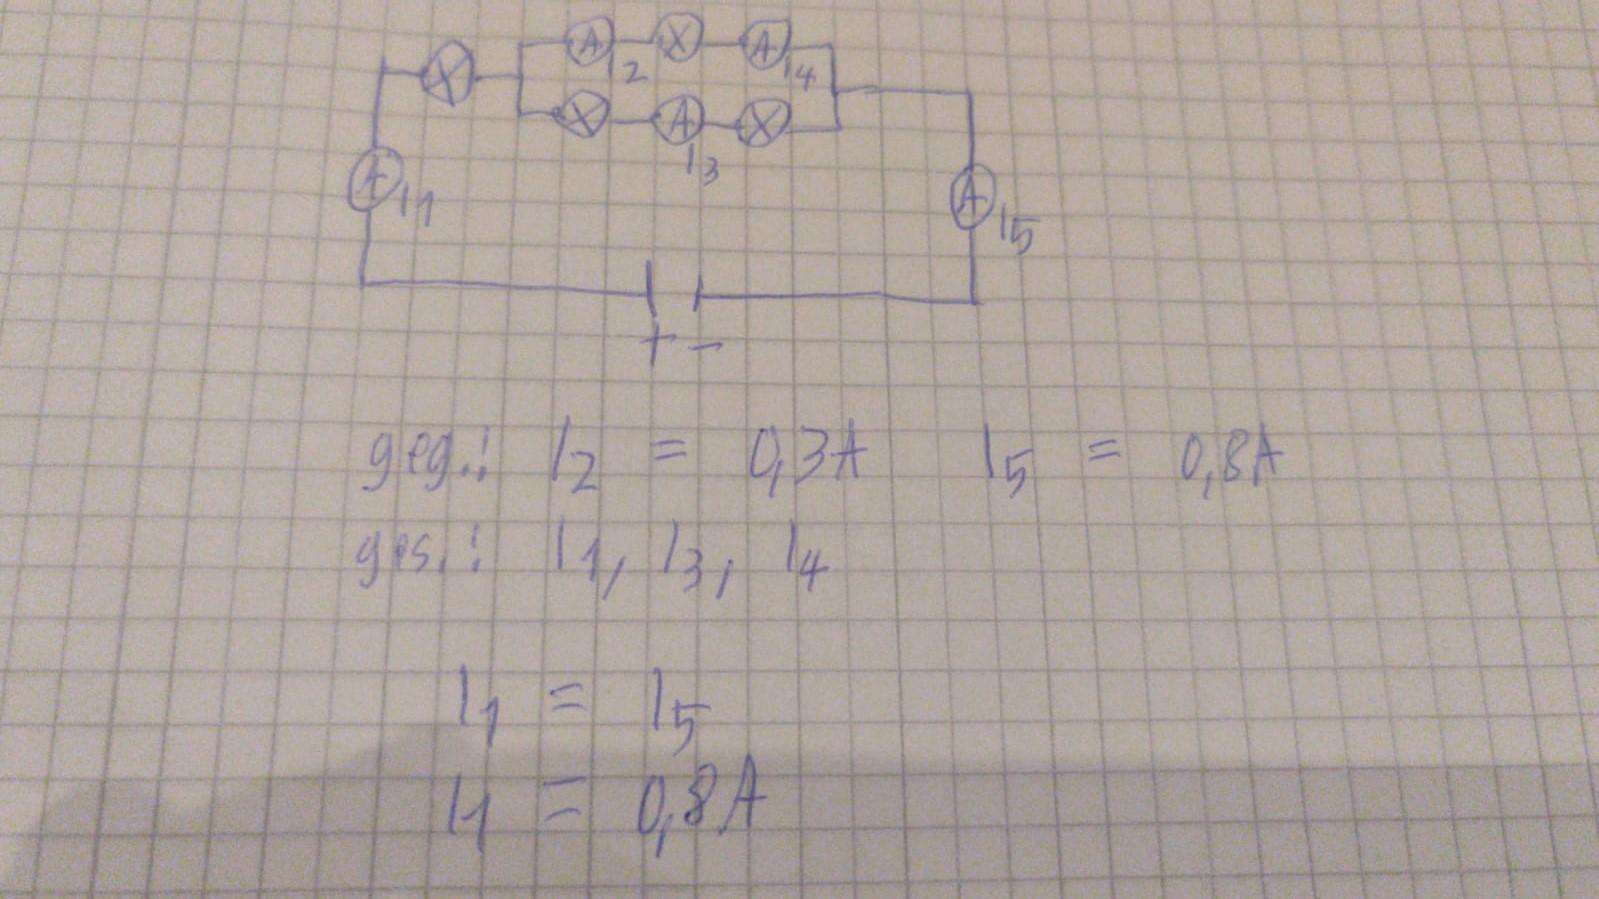 A X A
I2 I4
X
X A X
I3
A I1
A I5
+ −
geg.: I2 = 0,3A I5 = 0,8A
ges.: I1, I3, I4
I1 = I5
I1 = 0,8A